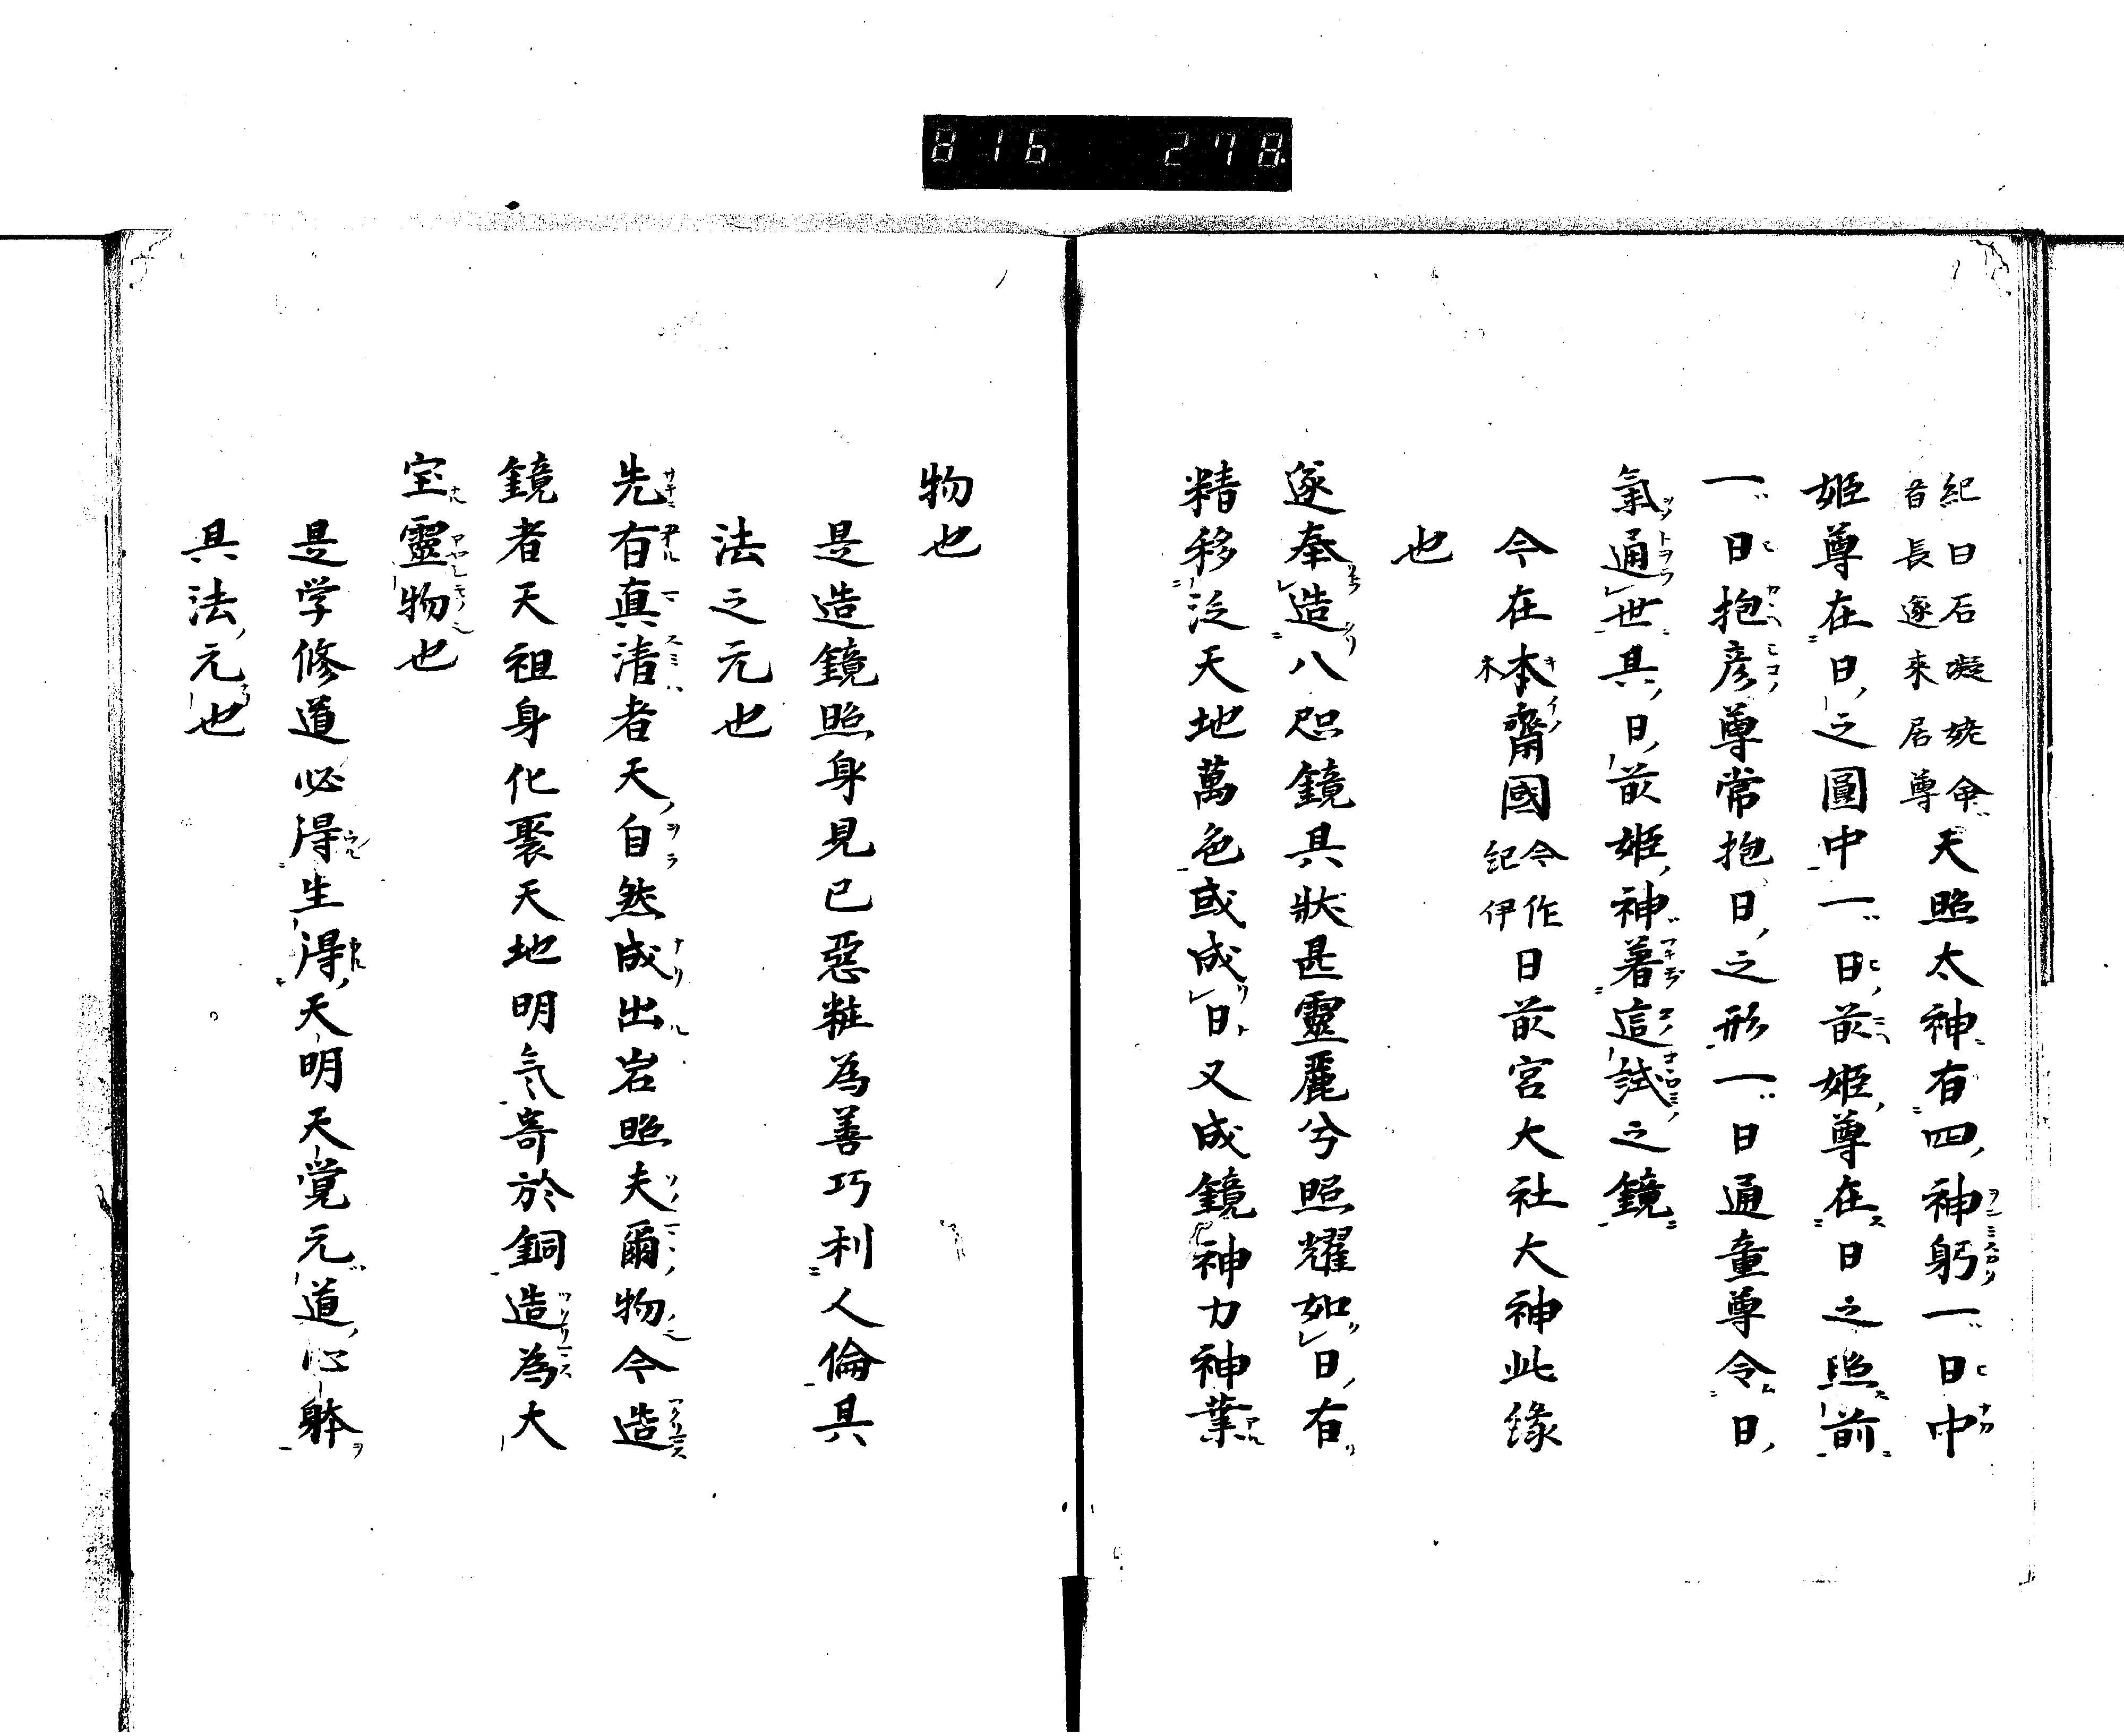 816 278
紀曰石凝姥命
音長遂来居尊
天照太神有四神躬一日中
姫尊在日之圓中一日前姫尊在日之照前
一日抱彦尊常抱日之形一日通童尊令日
氣通世具日前姫神著這試之鏡
今在本齋國
今作
紀伊
日前宮大社大神此縁
也
遂奉造八咫鏡其狀甚靈麗兮照耀如日有
精移泛天地萬色或成日又成鏡神力神業
物也
是造鏡照身見已惡粧為善巧利人倫具
法之元也
先有真清者天自然成出岩照夫爾物今造
鏡者天祖身化聚天地明氣寄於銅造為大
宝靈物也
是学修道必得生得天明天覚元道心躰
具法元也